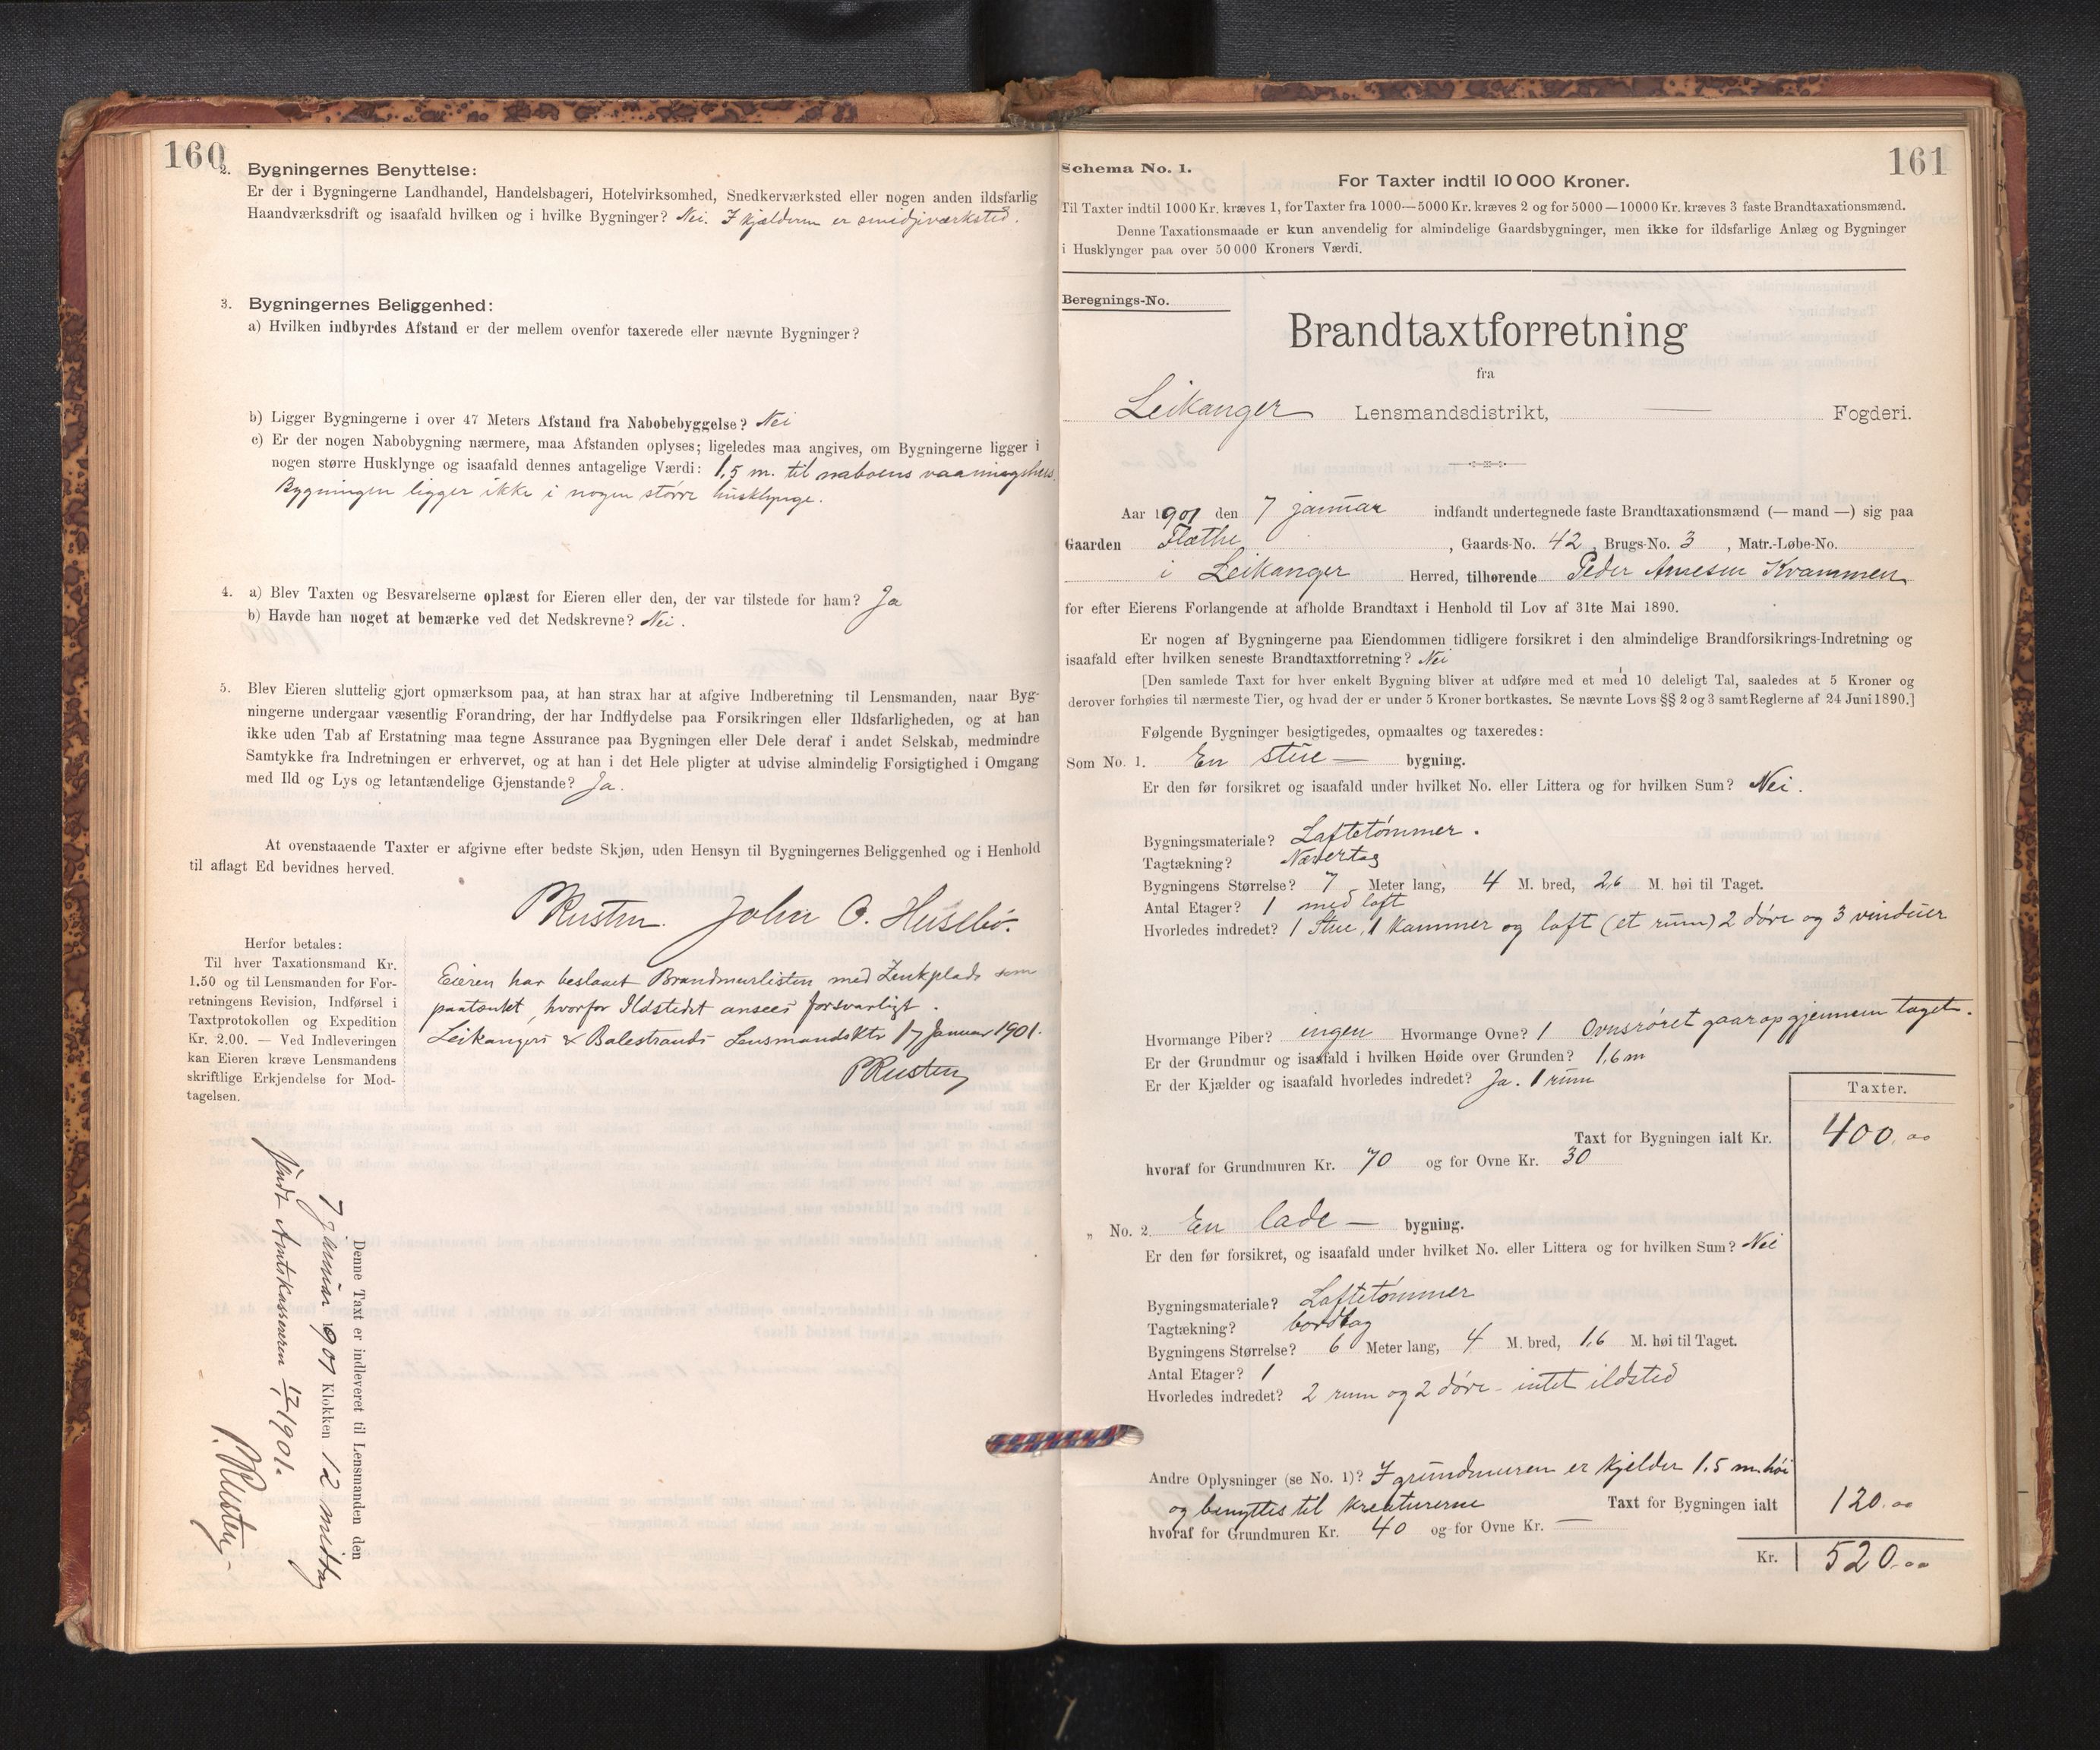 160
2. Bygningernes Benyttelse:
Er der i Bygningerne Landhandel, Handelsbageri, Hotelvirksomhed, Snedkerværksted eller nogen anden ildsfarlig
Haandværksdrift og isaafald hvilken og i hvilke Bygninger? Nei. I kjælderen er smidjeværksted.
3. Bygningernes Beliggenhed:
a) Hvilken indbyrdes Afstand er der mellem ovenfor taxerede eller nævnte Bygninger?
b) Ligger Bygningerne i over 47 Meters Afstand fra Nabobebyggelse? Nei
c) Er der nogen Nabobygning nærmere, maa Afstanden oplyses; ligeledes maa angives, om Bygningerne ligger i
nogen større Husklynge og isaafald dennes antagelige Værdi: 1,5 m. til naboens vaaningshus.
Bygningen ligger ikke i nogen større husklynge.
4. a) Blev Taxten og Besvarelserne oplæst for Eieren eller den, der var tilstede for ham? Ja
b) Havde han noget at bemærke ved det Nedskrevne? Nei.
5. Blev Eieren sluttelig gjort opmærksom paa, at han strax har at afgive Indberetning til Lensmanden, naar Byg-
ningerne undergaar væsentlig Forandring, der har Indflydelse paa Forsikringen eller Ildsfarligheden, og at han
ikke uden Tab af Erstatning maa tegne Assurance paa Bygningen eller Dele deraf i andet Selskab, medmindre
Samtykke fra Indretningen er erhvervet, og at han i det Hele pligter at udvise almindelig Forsigtighed i Omgang
med Ild og Lys og letantændelige Gjenstande? Ja.
At ovenstaaende Taxter er afgivne efter bedste Skjøn, uden Hensyn til Bygningernes Beliggenhed og i Henhold
til aflagt Ed bevidnes herved.
PRusten. John O. Husebø.
Herfor betales:
Til hver Taxationsmand Kr.
1.50 og til Lensmanden for For-
retningens Revision, Indførsel i
Taxtprotokollen og Expedition
Kr. 2.00. — Ved Indleveringen
kan Eieren kræve Lensmandens
skriftlige Erkjendelse for Mod-
tagelsen.
Eieren har beslaaet Brandmurlisten med Zinkplade som
paatænkt, hvorfor Ildstedet ansees forsvarligt.
Leikangers & Balestrands Lensmandsktr 17 Januar 1901.
PRusten
Denne Taxt er indleveret til Lensmanden den
7 januar 1901 Klokken 12 middag
Sendt Amtskassereren 17/1 1901.
P.Rusten.
Schema No. 1.
161
For Taxter indtil 10 000 Kroner.
Til Taxter indtil 1000 Kr. kræves 1, for Taxter fra 1000—5000 Kr. kræves 2 og for 5000—10000 Kr. kræves 3 faste Brandtaxationsmænd.
Denne Taxationsmaade er kun anvendelig for almindelige Gaardsbygninger, men ikke for ildsfarlige Anlæg og Bygninger
i Husklynger paa over 50 000 Kroners Værdi.
Beregnings-No.
Brandtaxtforretning
fra
Leikanger Lensmandsdistrikt, — Fogderi.
Aar 1901 den 7 januar indfandt undertegnede faste Brandtaxationsmænd (— mand —) sig paa
Gaarden Flæthe, Gaards-No. 42, Brugs-No. 3, Matr.-Løbe-No.
i Leikanger Herred, tilhørende Peder Arnesen Kvammen
for efter Eierens Forlangende at afholde Brandtaxt i Henhold til Lov af 31te Mai 1890.
Er nogen af Bygningerne paa Eiendommen tidligere forsikret i den almindelige Brandforsikrings-Indretning og
isaafald efter hvilken seneste Brandtaxtforretning? Nei
[Den samlede Taxt for hver enkelt Bygning bliver at udføre med et med 10 deleligt Tal, saaledes at 5 Kroner og
derover forhøies til nærmeste Tier, og hvad der er under 5 Kroner bortkastes. Se nævnte Lovs §§ 2 og 3 samt Reglerne af 24 Juni 1890.]
Følgende Bygninger besigtigedes, opmaaltes og taxeredes:
Som No. 1. En stue — bygning.
Er den før forsikret og isaafald under hvilket No. eller Littera og for hvilken Sum? Nei.
Bygningsmateriale? Laftetømmer.
Tagtækning? Nævertag
Bygningens Størrelse? 7 Meter lang, 4 M. bred, 2,6 M. høi til Taget.
Antal Etager? 1 med loft
Hvorledes indredet? 1 Stue, 1 kammer og loft (et rum) 2 døre og 3 vinduer
Hvormange Piber? ingen Hvormange Ovne? 1 Ovnsrøret gaar op gjennem taget.
Er der Grundmur og isaafald i hvilken Høide over Grunden? 1,6 m
Er der Kjælder og isaafald hvorledes indredet? Ja. 1 rum
Taxter.
Taxt for Bygningen ialt Kr. 400.00
hvoraf for Grundmuren Kr. 70 og for Ovne Kr. 30
„ No. 2. En lade — bygning.
Er den før forsikret, og isaafald under hvilket No. eller Littera og for hvilken Sum? Nei
Bygningsmateriale? Laftetømmer
Tagtækning? bordtag
Bygningens Størrelse? 6 Meter lang, 4 M. bred, 1,6 M. høi til Taget.
Antal Etager? 1
Hvorledes indredet? 2 rum og 2 døre - intet ildsted
Andre Oplysninger (se No. 1)? I grundmuren er kjelder 1.5 m. høi
og benyttes til kreaturerne Taxt for Bygningen ialt 120.00
hvoraf for Grundmuren Kr. 40 og for Ovne Kr. —
Kr. 520.00